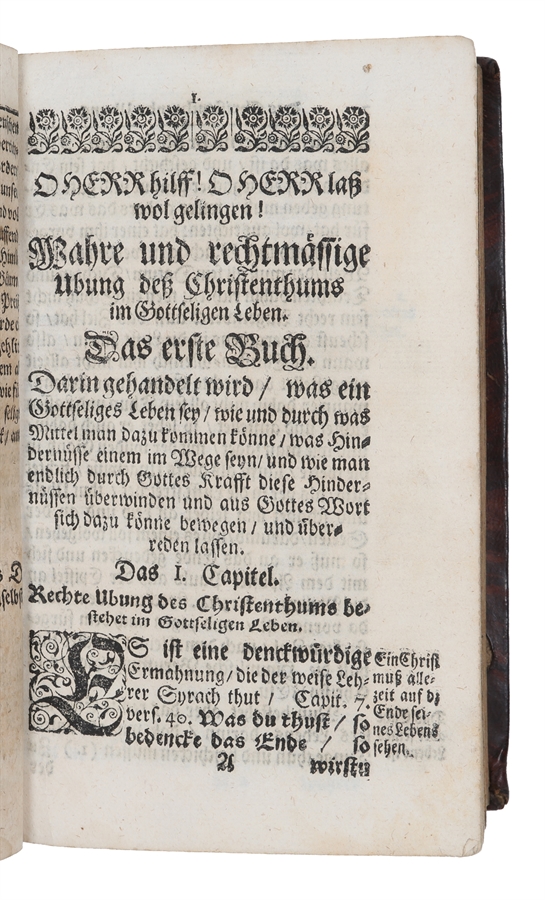 1.
O HERR hilff! O HERR laß
wol gelingen!
Wahre und rechtmässige
Ubung deß Christenthums
im Gottseligen Leben.
Das erste Buch.
Darin gehandelt wird / was ein
Gottseliges Leben sey / wie und durch was
Mittel man dazu kommen könne / was Hin-
dernüsse einem im Wege seyn / und wie man
endlich durch Gottes Krafft diese Hinder-
nüssen überwinden und aus Gottes Wort
sich dazu könne bewegen / und über-
reden lassen.
Das I. Capitel.
Rechte Ubung des Christenthums be-
stehet im Gottseligen Leben.
ES ist eine denckwürdige
Ermahnung / die der weise Leh-
rer Syrach thut / Capit. 7.
vers. 40. Was du thust / so
bedencke das Ende / so
A wirstu
Ein Christ
muß alle-
zeit auf dz
Ende sei-
nes Lebens
sehen.